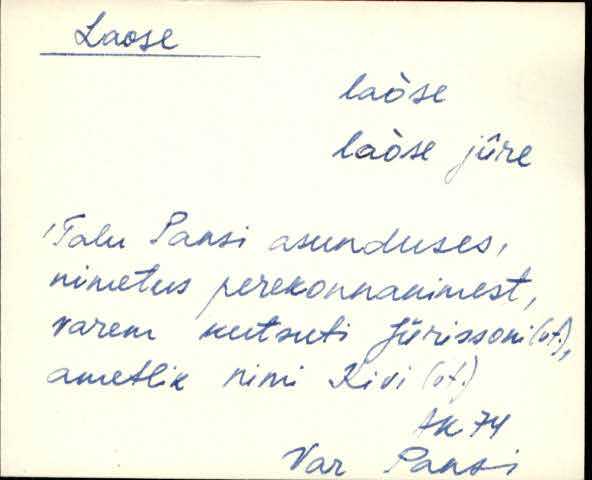 Laose
laòse
laòse jûre
'Talu Pansi asunduses,
nimetus perekonnanimest,
varem kutsuti Jürissoni (vt.),
ametlik nimi Kivi (vt.)
AK 74
Var Pansi